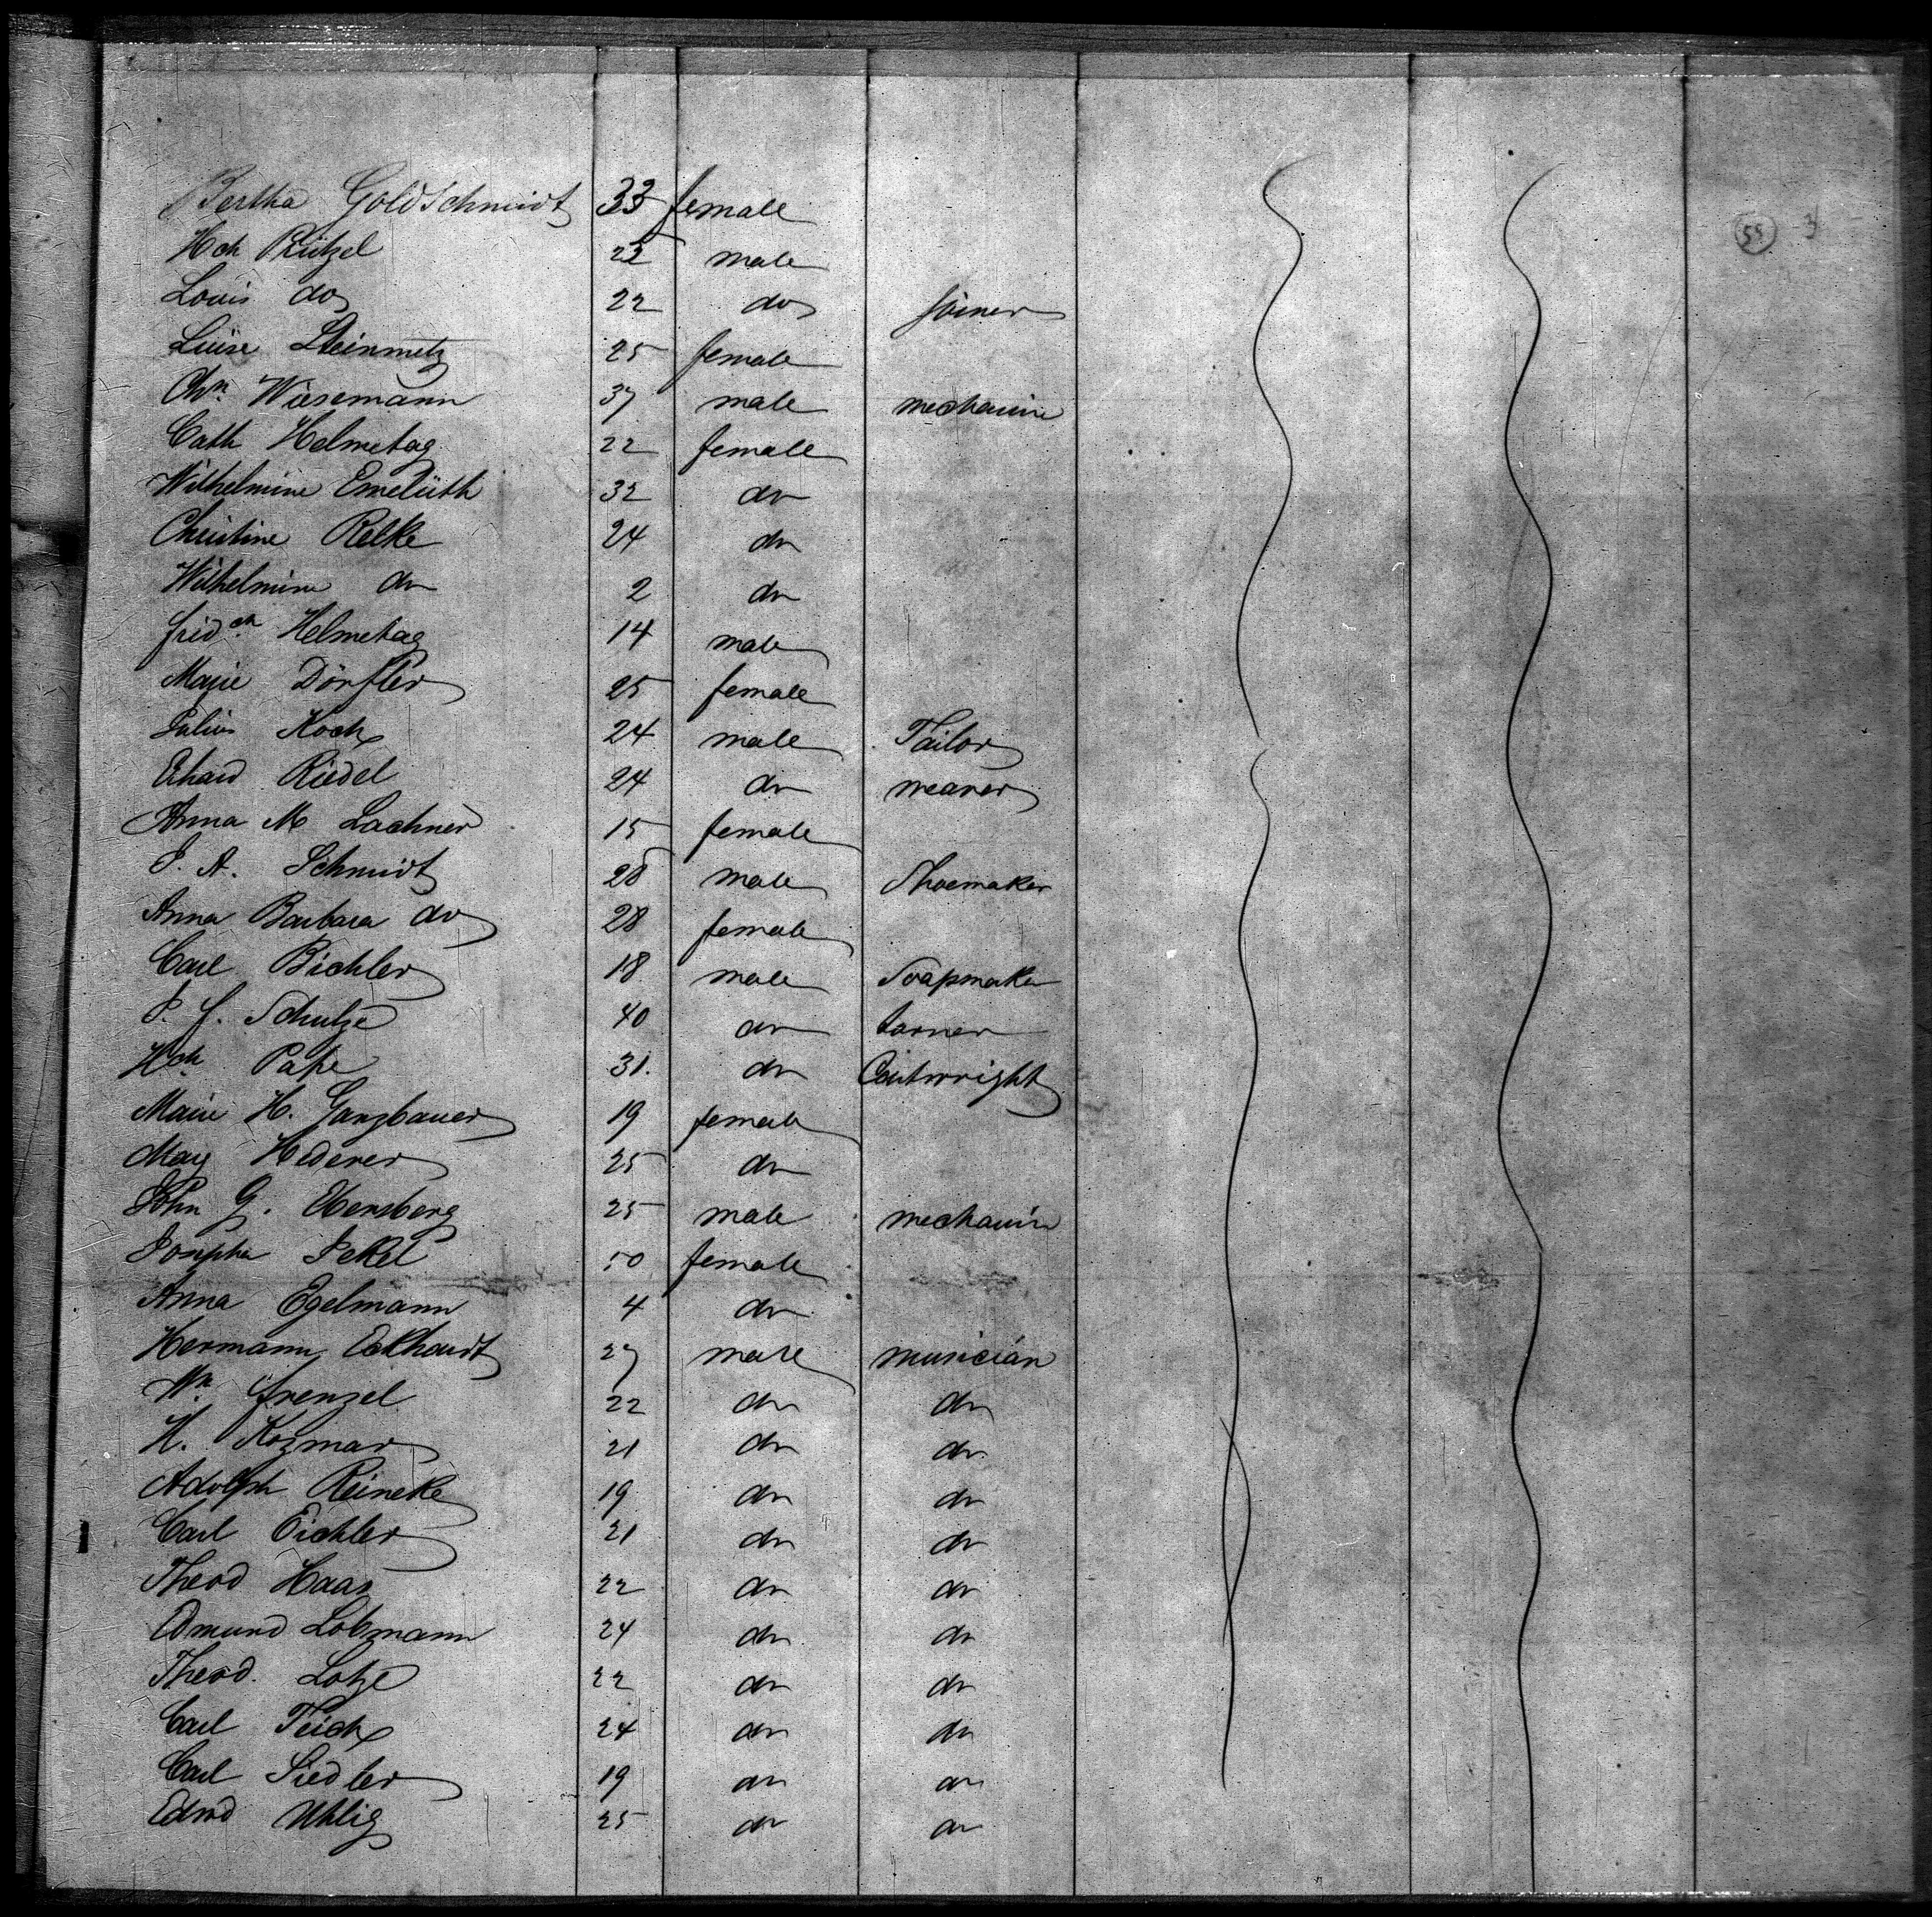 Bertha Goldschmidt 33 female
Hch Rützel 22 male
Louis do 22 do joiner
Luise Steinmetz 25 female
Chrn. Wiesemann 37 male mechanic
Cath Helmetag 22 female
Wilhelmine Emelüth 32 do
Christine Relke 24 do
Wilhelmine do 2 do
Fridch Helmetag 14 male
Marie Dörfler 25 female
Julius Koch 24 male Tailor
Erhard Riedel 24 do weaver
Anna M Lachner 15 female
J. A. Schmidt 28 male Shoemaker
Anna Barbara do 28 female
Carl Bichler 18 male Soapmaker
J. F. Schulze 40 do tanner
Hch Pape 31. do Cartwright
Marie H. Ganzbauer 19 female
Marg Hederer 25 do
John G. Ebersberg 25 male mechanic
Josepha Jekel 50 female
Anna Egelmann 4 do
Hermann Eckhardt 27 male musician
Wm. Frenzel 22 do do
H. Kozmar 21 do do
Adolph Reineke 19 do do
Carl Eichler 21 do do
Theod Haas 22 do do
Edmund Lobmann 24 do do
Theod. Lotze 22 do do
Carl Teich 24 do do
Carl Siedler 19 do do
Edwd Uhlig 25 do do
55 3